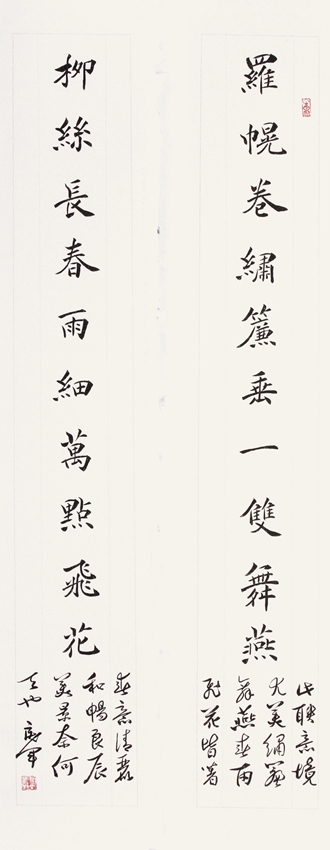 羅幌卷繡簾垂一雙舞燕
此聯意境
尤美繡簾
舞燕春雨
飛花皆著
柳絲長春雨細萬點飛花
春意清麗
和暢良辰
美景奈何
天也